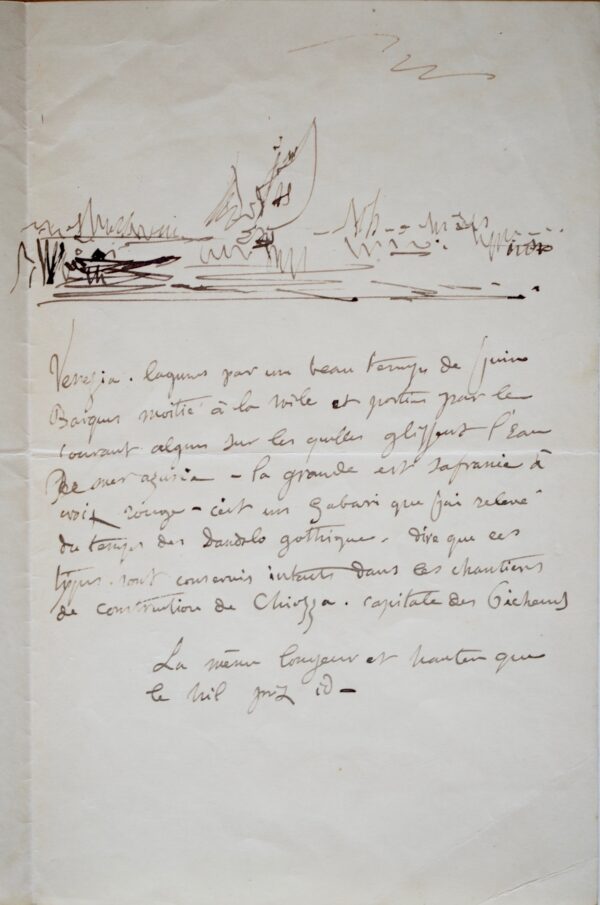 Venezia. lagunes par un beau temps de Juin
Barques moitié à la voile et portées par le
courant algues sur les quelles glissent l'Eau
De mer azurée – la grande est safranée à
croix rouge – c'est un Gabari que j'ai relevé
du temps des Dandolo gothique. dire que ces
types sont conservés intacts dans les chantiers
de construction de Chiozza. capitale des
La même longueur et hauteur que
le Nil prix id –